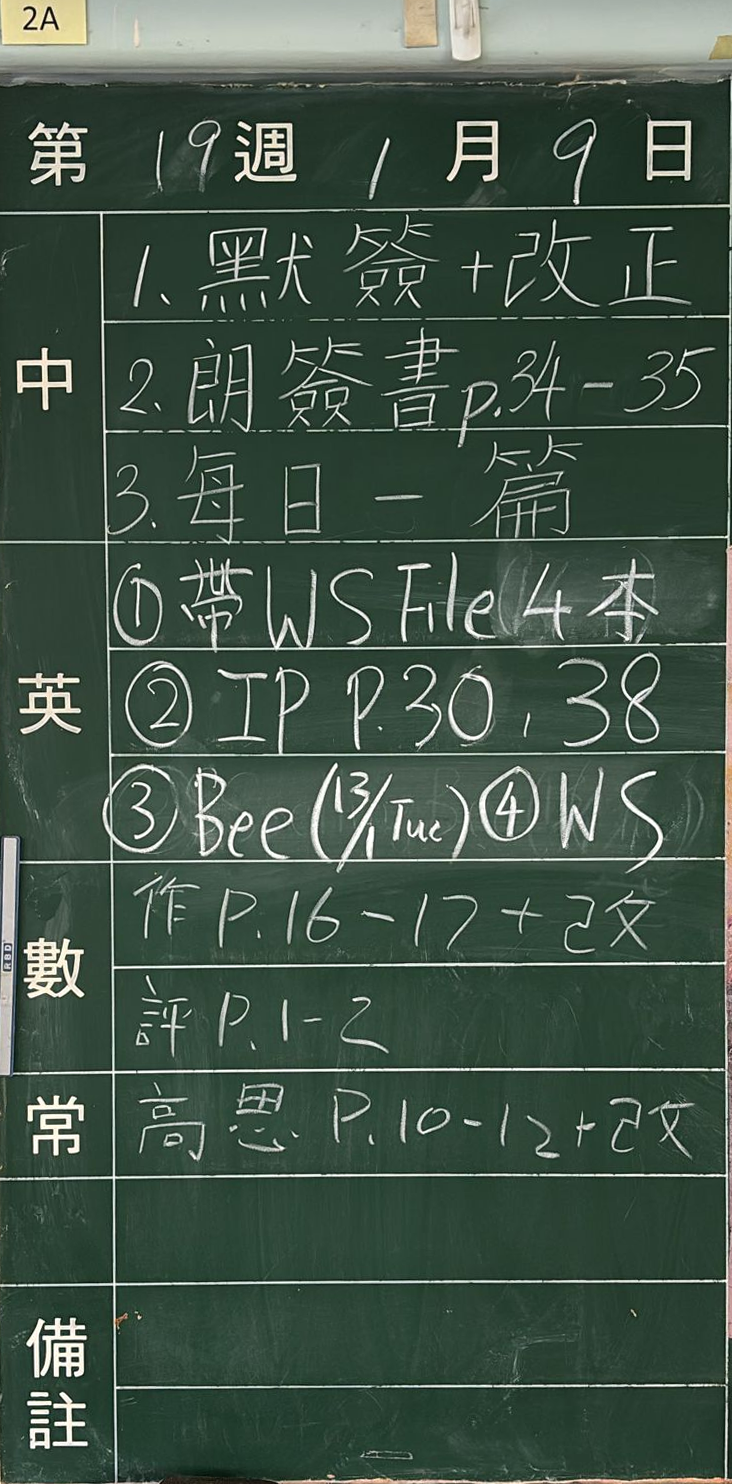 2A
第 19 週 1 月 9 日
中
1. 默簽+改正
2. 朗簽書p.34-35
3. 每日一篇
英
① 帶WS File 4本
② IP P.30, 38
③ Bee (13/1 Tue) ④ WS
數
作 P.16-17+改
評 P.1-2
常
高思 P.10-12+改
備註
RBD